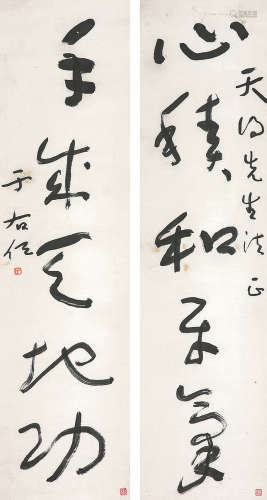 天先生法正
心積和平氣
手成天地功
于右任